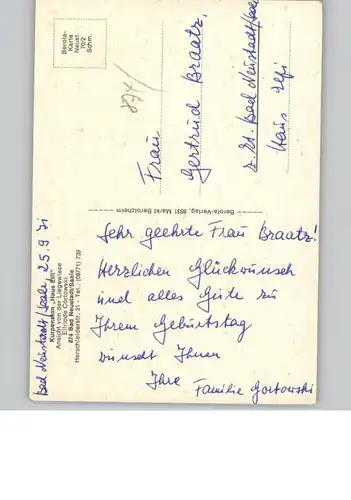 Berola-
Karte
Neust.
70/2
Schm.
874/
Frau
Gertrud Braatz,
z. Zt. Bad Neustadt/Saale
Haus Elfi
Berola-Verlag, 8531 Markt Berolzheim
Kurpension „Haus Elfi"
Ansicht von der Liegewiese
Elfriede Gortowski
874 Bad Neustadt/Saale
Herschfelderstr. 31 - Tel.: (09771) 739
Bad Neustadt/Saale, 25.9.71
Sehr geehrte Frau Braatz!
Herzlichen Glückwunsch
und alles Gute zu
Ihrem Geburtstag
wünscht Ihnen
Ihre Familie Gortowski